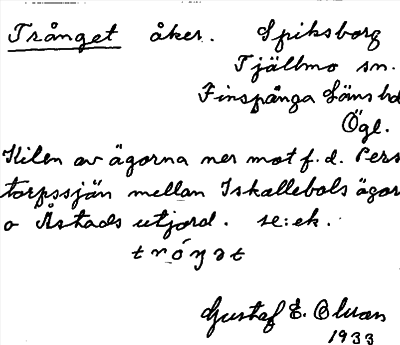 Trånget åker. Spiksborg
Tjällmo sn.
Finspånga Läns hd
Ögl.
Kilen av ägorna ner mot f.d. Pers
torpssjön mellan Iskallebols ägor
o Åstads utjord. se: ek.
Gustaf E. Olsson
1933